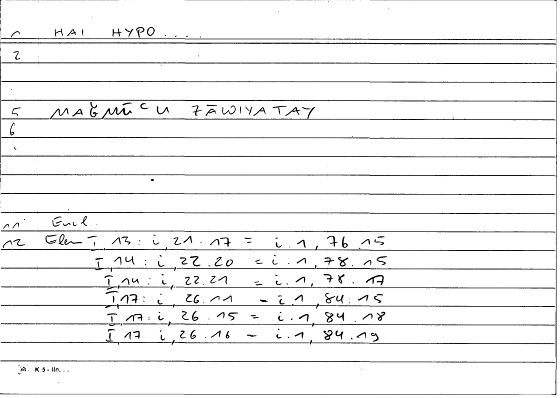 1 HAI HYPO....
2
5 MAǦMŪʿU ZĀWIYATAY
6
11 Eucl.
12 Elem I, 13 : i, 21.17 = i.1, 76.15
I, 14 : i, 22.20 = i.1, 78.15
I, 14 : i, 22.21 = i.1, 78.17
I, 17 : i, 26.11 = i.1, 84.15
I, 17 : i, 26.15 = i.1, 84.18
I, 17 i, 26.16 = i.1, 84.19